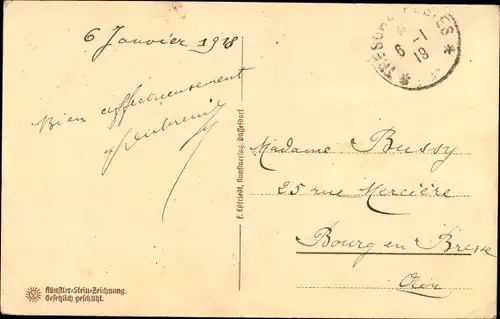 6 Janvier 1918
Bien affectueusement
TRESOR ET POSTES
6 -1
19
Madame Bussy
25 rue Mercière
Bourg en Bresse
Ain
F. Esfriedt, Kunstverlag, Düsseldorf.
Künstler-Stein-Zeichnung.
Gesetzlich geschützt.